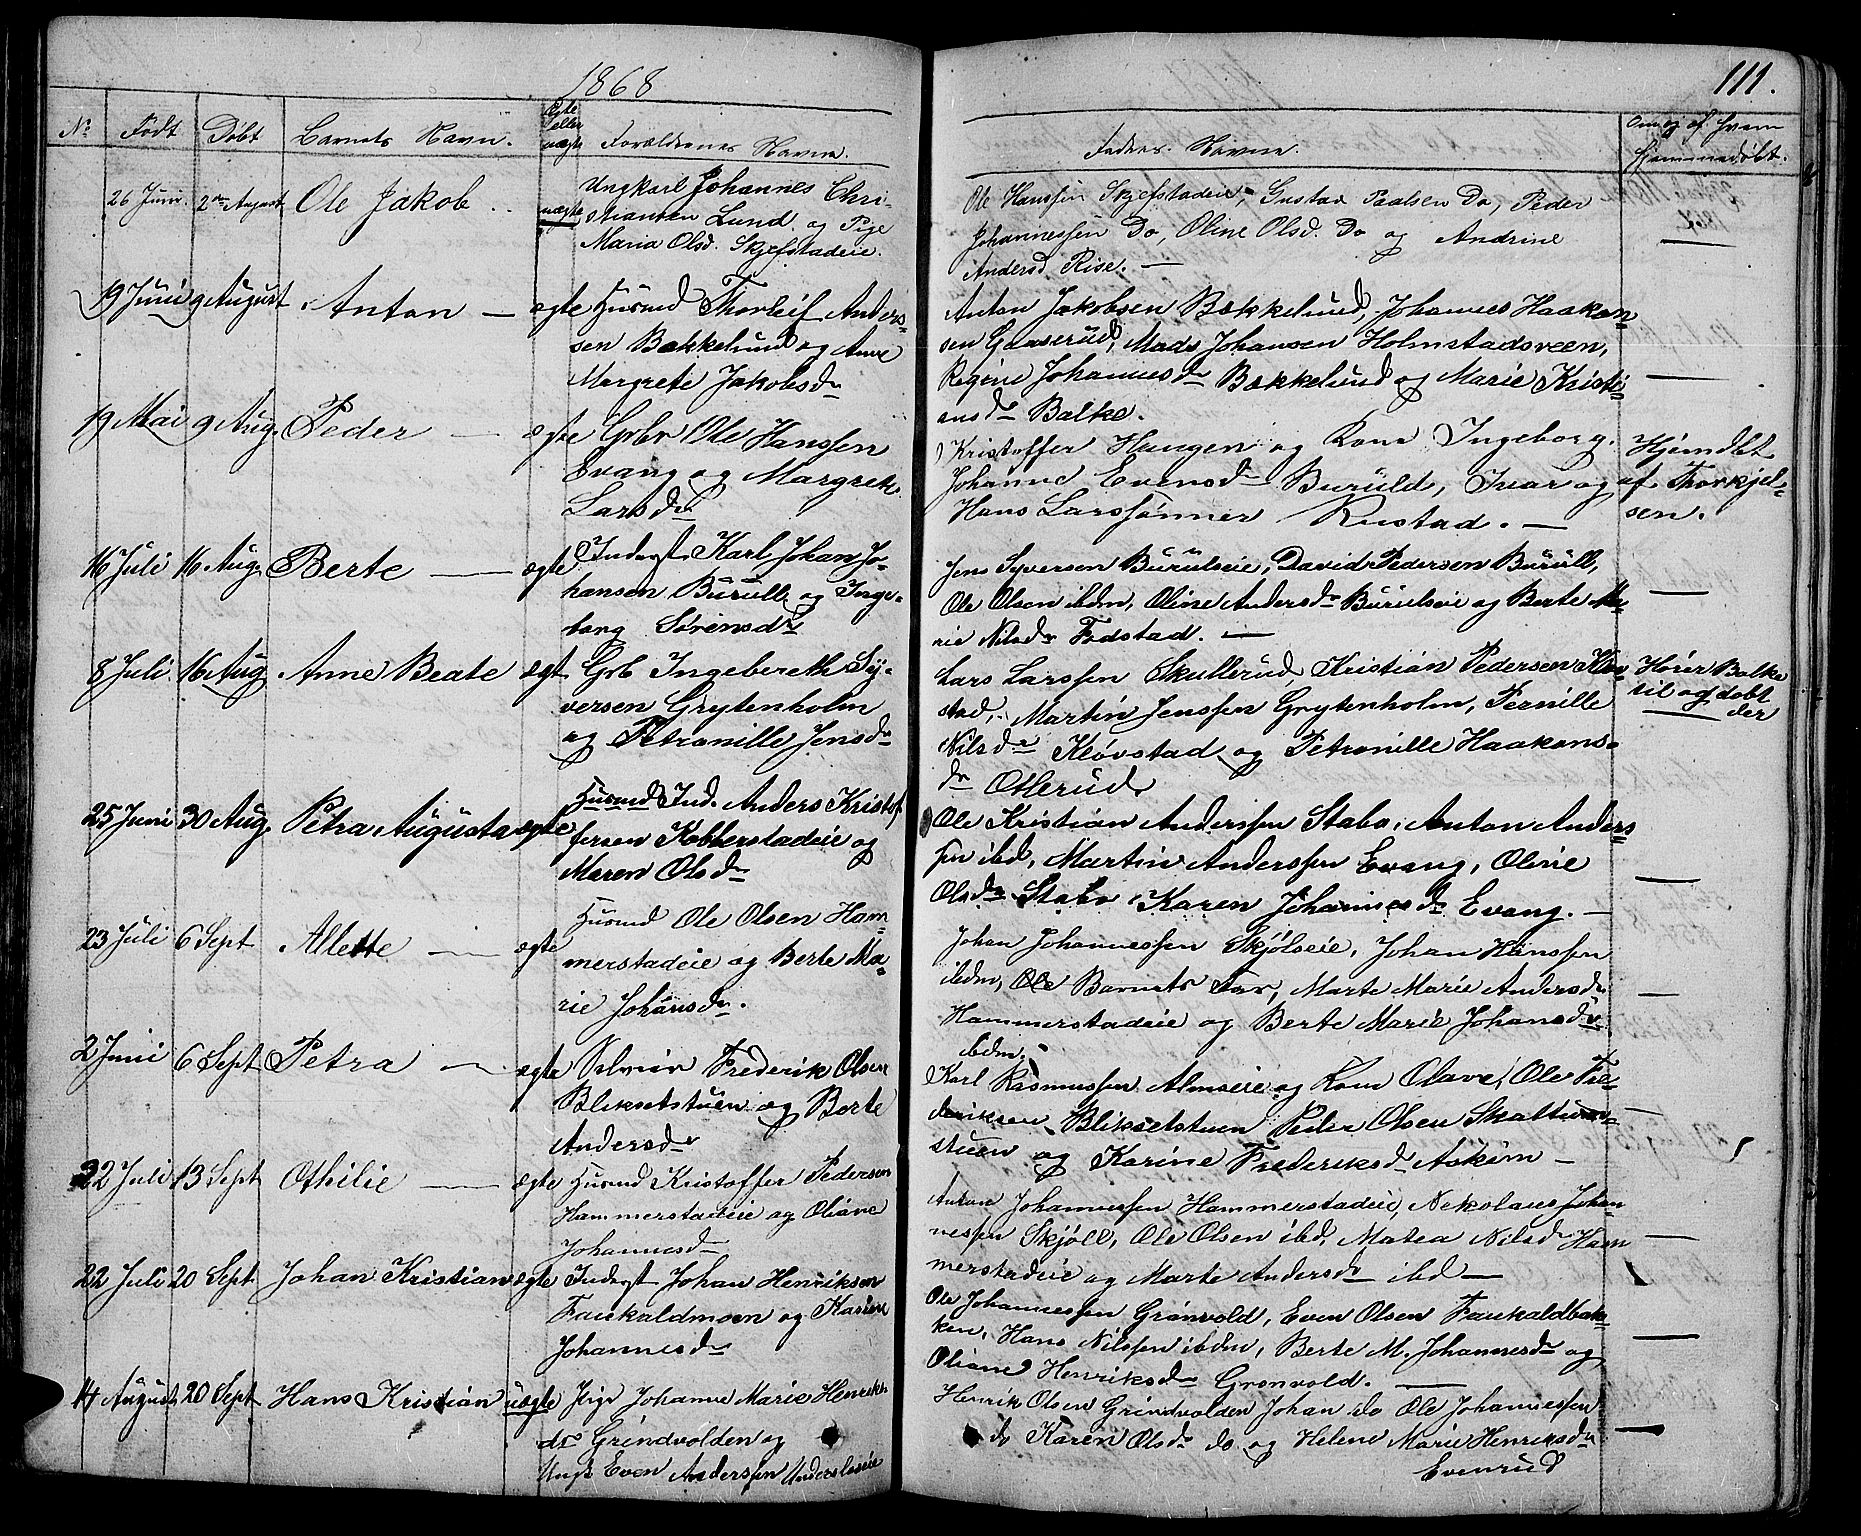 1868
111.
No Født Døbt Barnets Navn. Egte eller uægte Forældrenes Navne.
Fadres Navne. Om og af hvem hjemmedøbt.
26 Juni 2den August Ole Jakob uægte Ungkarl Johannes Chri-
stiansen Lund og Pige
Maria Olsd. Skjefstadeie.
Ole Hanssen Skjefstadeie, Gustav Paalsen Do, Peder
Johannessen Do, Oline Olsd. Do og Andrine
Andersd Rise. —
19 Juni 9 August Anton — ægte Husmd Thorleif Anders-
sen Bækkelund og Anne
Margrete Jakobsdr
Anton Jakobsen Bækkelund, Johannes Haakon-
sen Gaaserud, Mads Johansen Holmstadsveen,
Regine Johannesdr Bækkelund og Marie Kristi-
ansdr Balke.
19 Mai 9 Aug. Peder — ægte Grbr Ole Hanssen
Evang og Margrete
Larsdr
Kristoffer Haugen og Kone Ingeborg.
Johanne Evensdr Buruld, Ivar og
Hans Larssønner Rustad. —
Hjemdbt
af Thorkjel-
sen.
16 Juli 16 Aug. Berte — ægte Inderst Karl Johan Jo-
hansen Burull og Inge-
borg Sørensdr
Jens Syversen Burulseie, David Pedersen Burull,
Ole Olsen ibdm, Oline Andersdr Burulseie og Berte Ma-
rie Nilsdr Fodstad. —
8 Juli 16 Aug Anne Beate ægt Grb Ingebereth Sy-
versen Grytenholm
og Petronille Jensdr
Lars Larssen Skullerud, Kristian Pedersen Kløv-
stad, Martin Jenssen Grytenholm, Pernille
Nilsdr Kløvstad og Petronille Haakons-
dr Otterud
Hører Balke
til og døbt
der
25 Juni 30 Aug. Petra Augusta ægte Husmd Ind. Anders Kristof
fersen Kobberstadeie og
Maren Olsdr
Ole Kristian Anderssen Stabo, Anton Anders-
sen ibd, Martin Anderssen Evang, Oline
Olsdr Stabo Karen Johannesdr Evang. —
23 Juli 6 Sept Allette — ægte Husmd Ole Olsen Ham
merstadeie og Berte Ma-
rie Johansdr.
Johan Johannessen Skjølseie, Johan Hanssen
ibdm, Ole Barnets Far, Marte Marie Andersdr
Hammerstadeie og Berte Marie Johansdr
ibdm.
2 Juni 6 Sept Petra — ægte Selveier Frederik Olsen
Bliksetstuen og Berte
Andersdr
Karl Rasmussen Almseie og Kone Olave, Ole Fre-
deriksen Bliksetstuen Peder Olsen Skattum-
stuen og Karine Frederiksd Askim —
22 Juli 13 Sept Othilie — ægte Husmd Kristoffer Pedersen
Hammerstadeie og Oliane
Johannesdr
Anton Johannessen Hammerstadeie, Nekolaus Johan-
nessen Skjøll, Ole Olsen ibd, Matea Nilsdr Ham
merstadeie og Marte Andersdr ibd —
22 Juli 20 Sept Johan Kristian ægte Inderst Johan Henriksen
Faukaldmoen og Karine
Johannesdr
Ole Johannessen Grønvold, Even Olsen Faukaldbak-
ken, Hans Nilssen ibdm, Berte M. Johannesdr og
Oliane Henriksdr Grønvold. —
14 August 20 Sept Hans Kristian uægte Pige Johanne Marie Henriks
dr Grindvolden og
Ungk Even Anderssen Undersloseie
Henrik Olsen Grindvolden Johan do Ole Johannessen
do Karen Olsdr do og Helene Marie Henriksdr
Evenrud